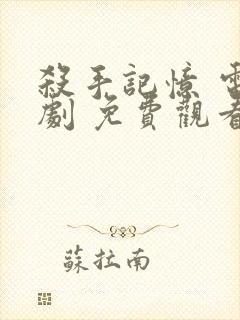 殺手記憶 電
劇 免費觀看
蘇拉南